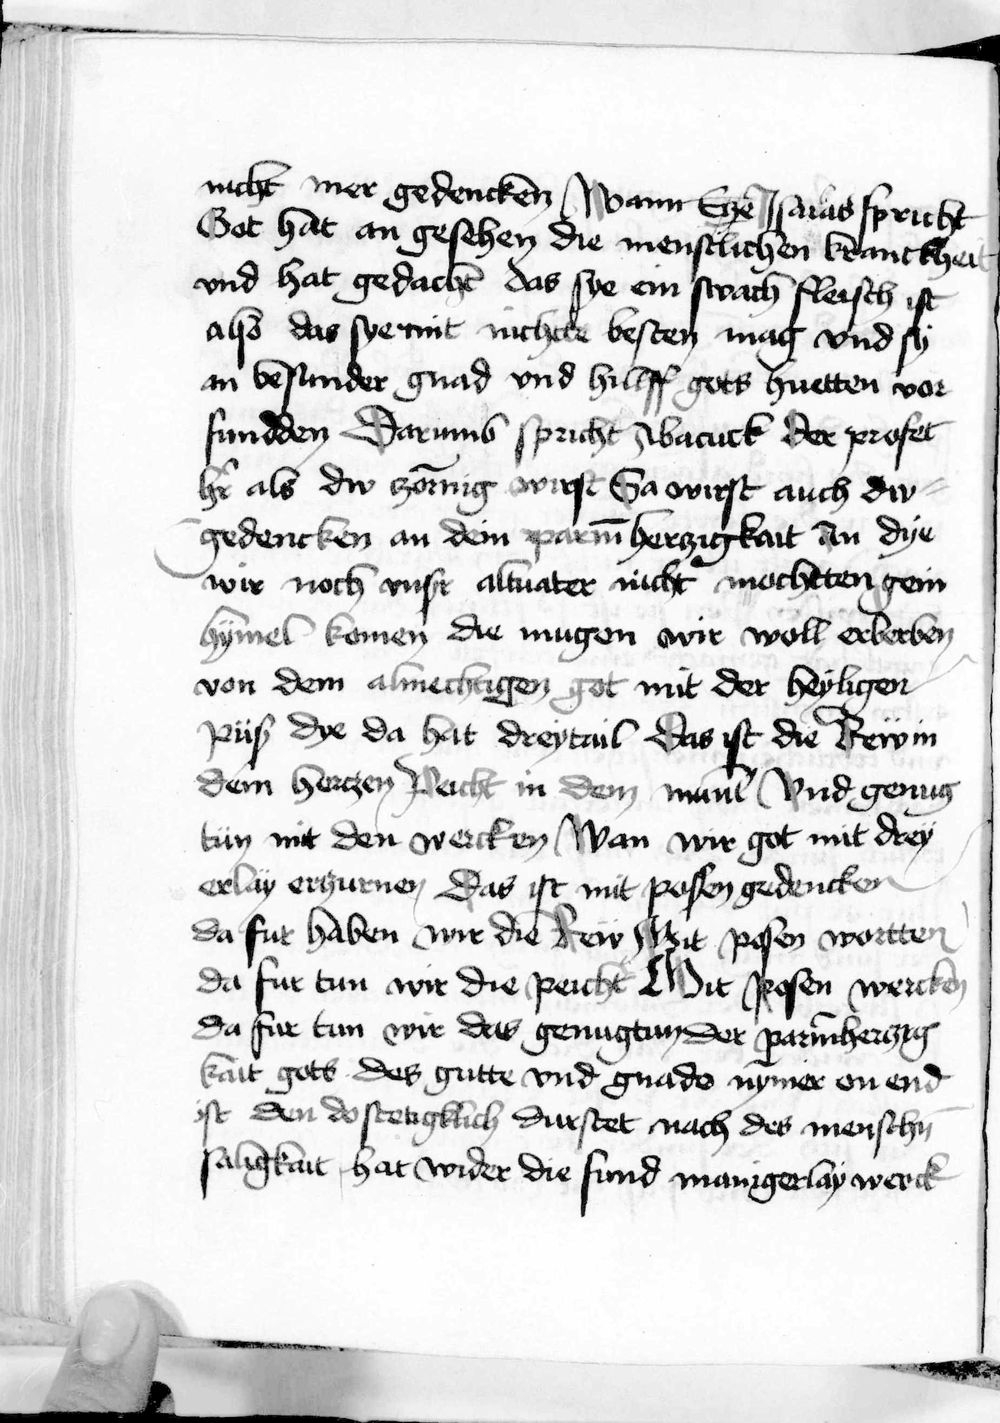 nicht mer gedencken Wann Isaias spricht
Got hat an gesehen die menschlichen kranckheit
vnd hat gedacht das sye ein swach fleisch ist
also das sye nit besten mag vnd sy
an besunder gnad vnd hillff gots huetten vor
sundden Darumb spricht Abacuck der profet
hr als dw zornig wirst Sa wirst auch dw
gedencken an dein parmherczigkait An dye
wir noch vnsr altuater nicht mochtten gein
hymel komen die mugen wir woll erberben
von dem almechtigen got mit der heyligen
pus dye da hat dreytail Das ist die Rew in
dem herczen Peicht in dem munt Vnd genug
tun mit den wercken Wan wir got mit drey
erlay erzurnen Das ist mit posen gedencken
da fur haben wir die Rew Mit posen wortten
da fur tun wir die peicht Mit posen wercken
da fur tun wir das genugtun der parmherczig
kait gots des gutte vnd gnade nymer on end
ist den do stetigklich durstet nach des menschn
saligkait hat wider die sund manigerlay werck